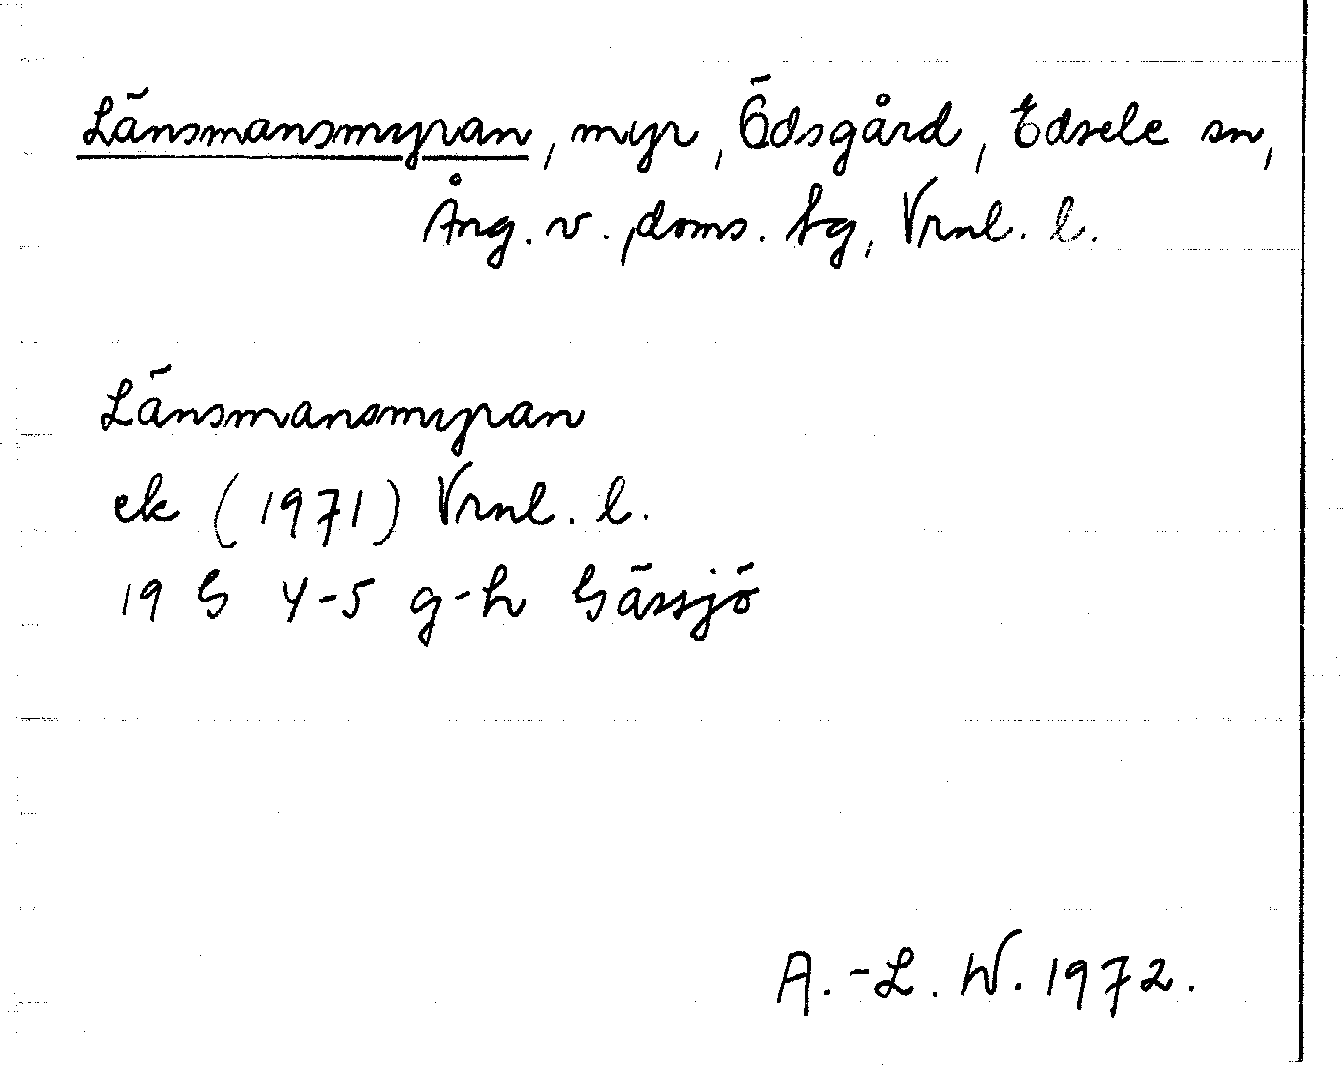 Länsmansmyran, myr, Ödsgård, Edsele sn,
Ång. v. doms. tg, Vrnl. l.
Länsmansmyran
ek (1971) Vrnl. l.
19 G 4-5 g-h Gässjö
A.-L. W. 1972.